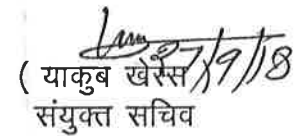 27/9/18
( याकुब खेरस
संयुक्त सचिव